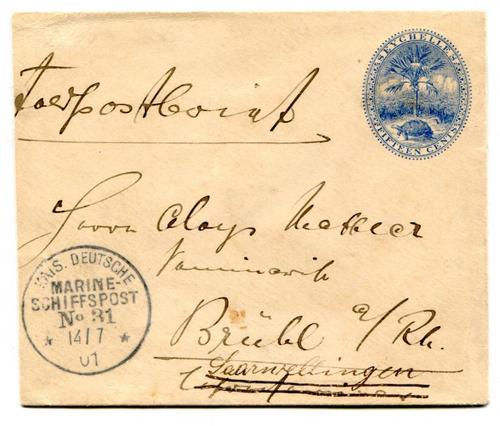 SEYCHELLES
FIFTEEN CENTS
Herrn Aloys
Brühl a/Rh.
Saarwellingen
KAIS. DEUTSCHE
MARINE-
SCHIFFSPOST
No 31
* 14/7 *
01